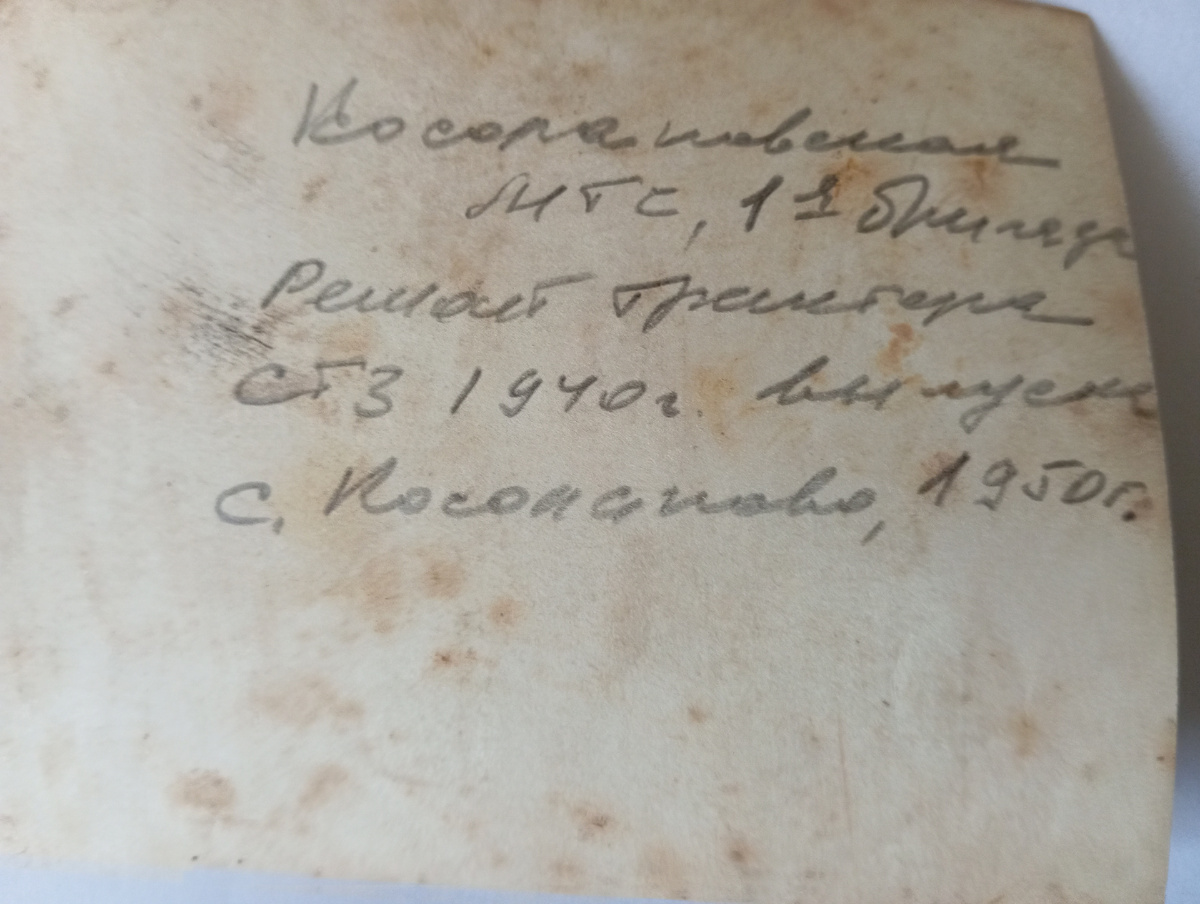 Косолаповская
МТС, 1я бригада
Ремонт трактора
СТЗ 1940г. выпуска
с. Косолапово, 1950г.